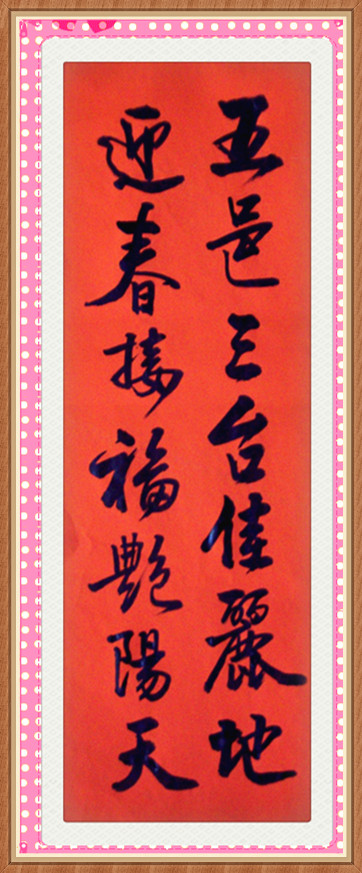 五邑三台佳麗地
迎春接福艶陽天